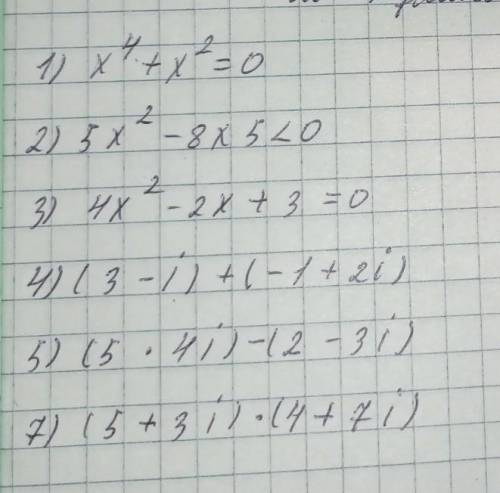 1) x⁴ + x² = 0
2) 5x² - 8x 5 < 0
3) 4x² - 2x + 3 = 0
4) (3 - i) + (-1 + 2i)
5) (5 · 4i) - (2 - 3i)
7) (5 + 3i) · (4 + 7i)